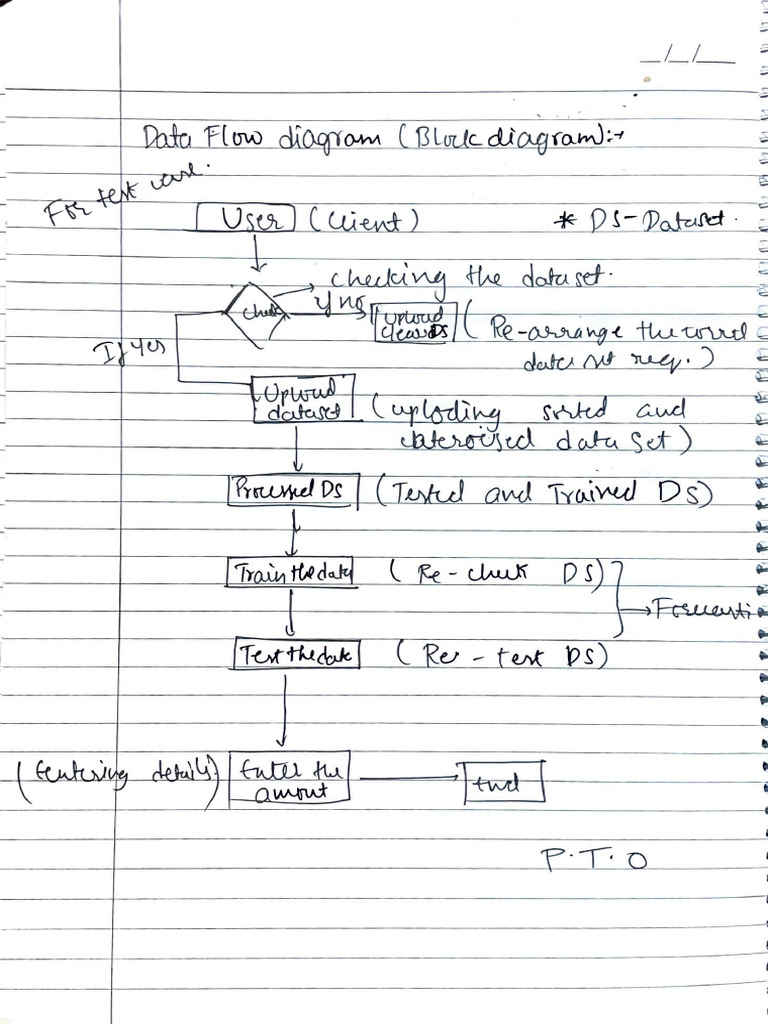 _/_/_
Data Flow diagram (Block diagram):→
For test case.
User (Client) * DS-Dataset.
checking the dataset.
Check
Upload
Clean DS
(Re-arrange the
data set req.)
If yes
Upload
dataset
(uploding sorted and
data set)
Processed DS (Tested and Trained DS)
Train the data (Re-check DS)
→ Forecasti
Test the data (Re-test DS)
(Eentering details) Enter the
amount
End
P.T.O